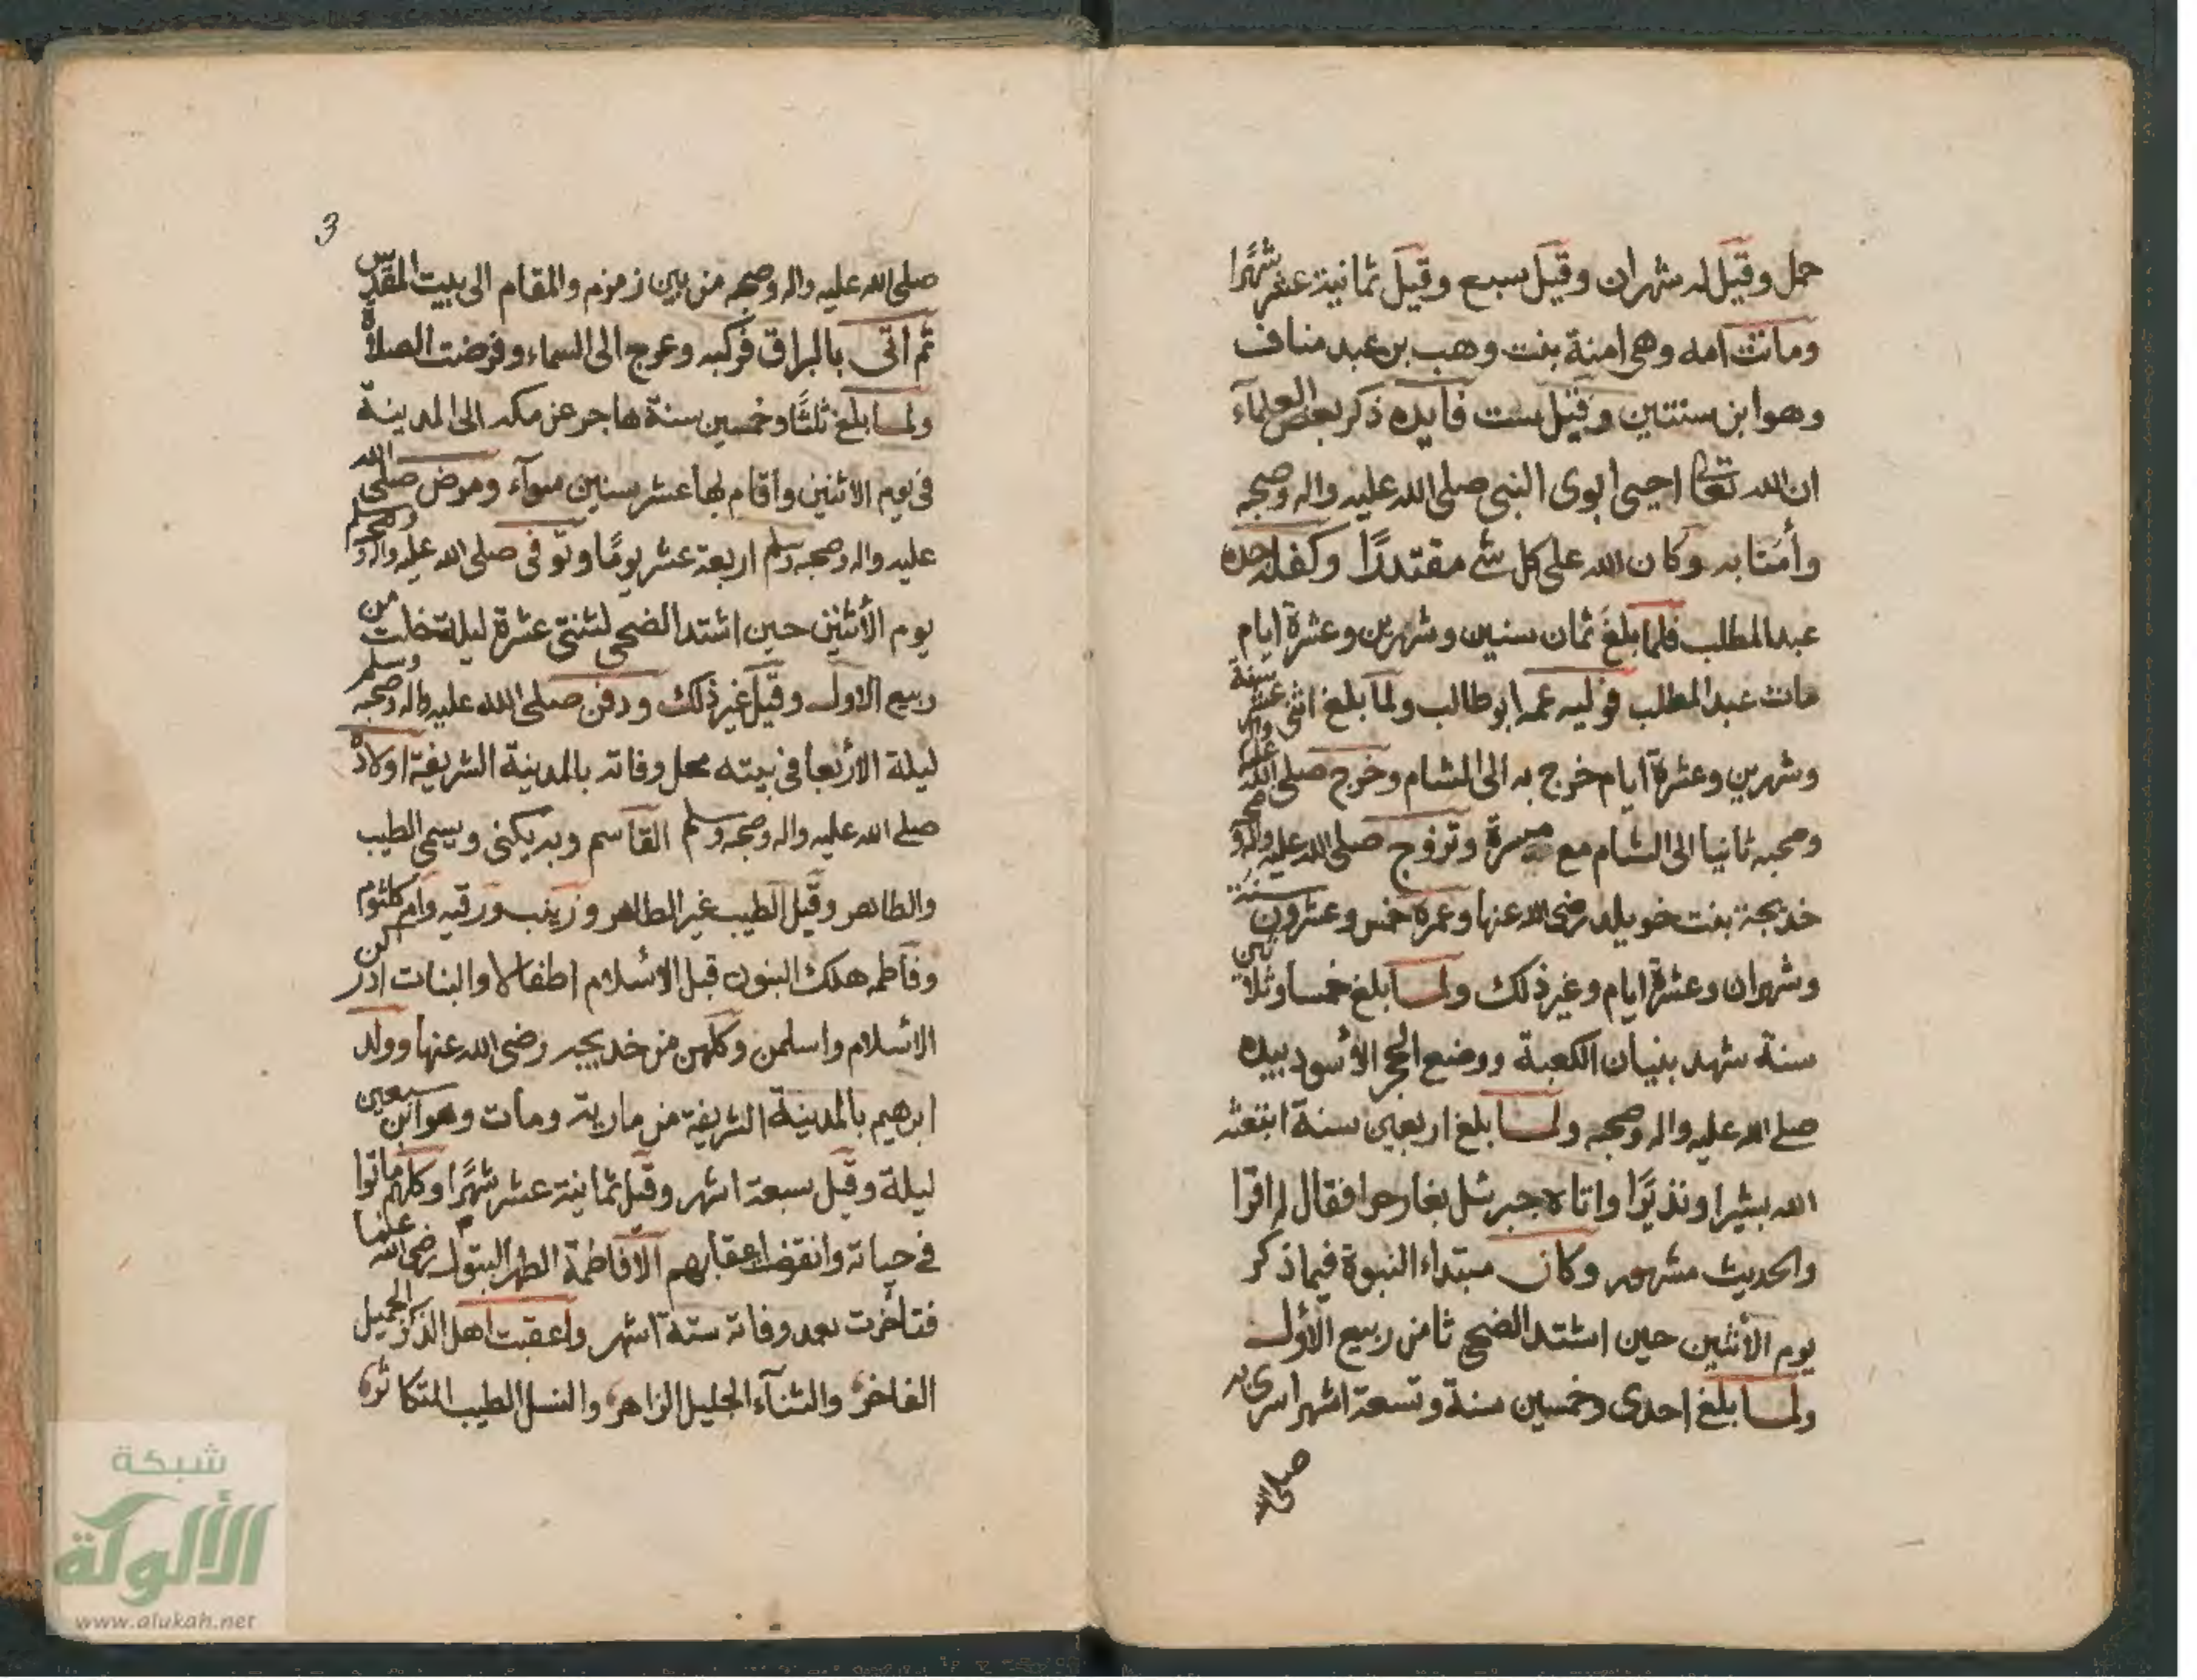 حمل وقيل له شهران وقيل سبع وقيل ثمانية عشر شهرًا
وماتت امه وهي امنة بنت وهب بن عبد مناف
وهو ابن سنتين وقيل ست فايده ذكر بعض العلمآء
ان الله تعالى احيى ابوى النبي صلى الله عليه واله وصحبه
وأمنا به وكان الله على كل شئ مقتدرًا وكفله جده
عبد المطلب فلما بلغ ثمان سنين وشهرين وعشرة ايام
مات عبد المطلب فوليه عمه ابو طالب ولما بلغ اثنى عشر سنة
وشهرين وعشرة ايام خرج به الى الشام وخرج صلى الله عليه واله
وصحبه ثانيا الى الشام مع ميسرة وتزوج صلى الله عليه واله وصحبه
خديجة بنت خويلد رضى الله عنها وعمره خمس وعشرون سنة
وشهران وعشرة ايام وغير ذلك ولما بلغ خمسا وثلاثين
سنة شهد بنيان الكعبة ووضع الحجر الأسود بيده
صلى الله عليه واله وصحبه ولما بلغ اربعين سنة ابتعثه
الله بشيرا ونذيرًا واتاه جبرئل بغار حرا فقال له اقرا
والحديث مشهور وكان مبتداء النبوة فيما ذكر
يوم الأثنين حين اشتد الضحى ثامن ربيع الأول
ولما بلغ احدى وخمسين سنة وتسعة اشهر اسرى به
صلى الله
3
صلى الله عليه واله وصحبه من بين زمزم والمقام الى بيت المقدس
ثم اتى بالبراق فركبه وعرج الى السماء وفرضت الصلاة
ولما بلغ ثلثًا وخمسين سنة هاجر عن مكه الى المدينة
في يوم الاثنين واقام بها عشر سنين سوآء ومرض صلى الله
عليه واله وصحبه وسلم اربعة عشر يومًا وتوفى صلى الله عليه واله وصحبه وسلم
يوم الأثنين حين اشتد الضحى لثنتي عشرة ليلة خلت من
ربيع الاول وقيل غير ذلك ودفن صلى الله عليه واله وصحبه وسلم
ليلة الأربعا في بيته محل وفاته بالمدينة الشريفة اولاده
صلى الله عليه واله وصحبه وسلم القاسم وبه يكنى ويسمى الطيب
والطاهر وقيل الطيب غير الطاهر وزينب ورقيه وام كلثوم
وفاطمه هلك البنون قبل الاسلام اطفالا والبنات ادركن
الاسلام واسلمن وكلهن من خديجه رضى الله عنها وولد
ابرهيم بالمدينة الشريفة من مارية ومات وهو ابن سبعين
ليلة وقيل سبعة اشهر وقيل ثمانية عشر شهرًا وكلهم ماتوا
في حياته وانقضت اعقابهم الا فاطمة الطهر البتول رضى الله عنها
فتأخرت بعد وفاته ستة اشهر واعقبت اهل الذكر الجميل
الفاخر، والثنآء الجليل الزاهر، والنسل الطيب المتكاثر،
شبكة
الألوكة
www.alukah.net